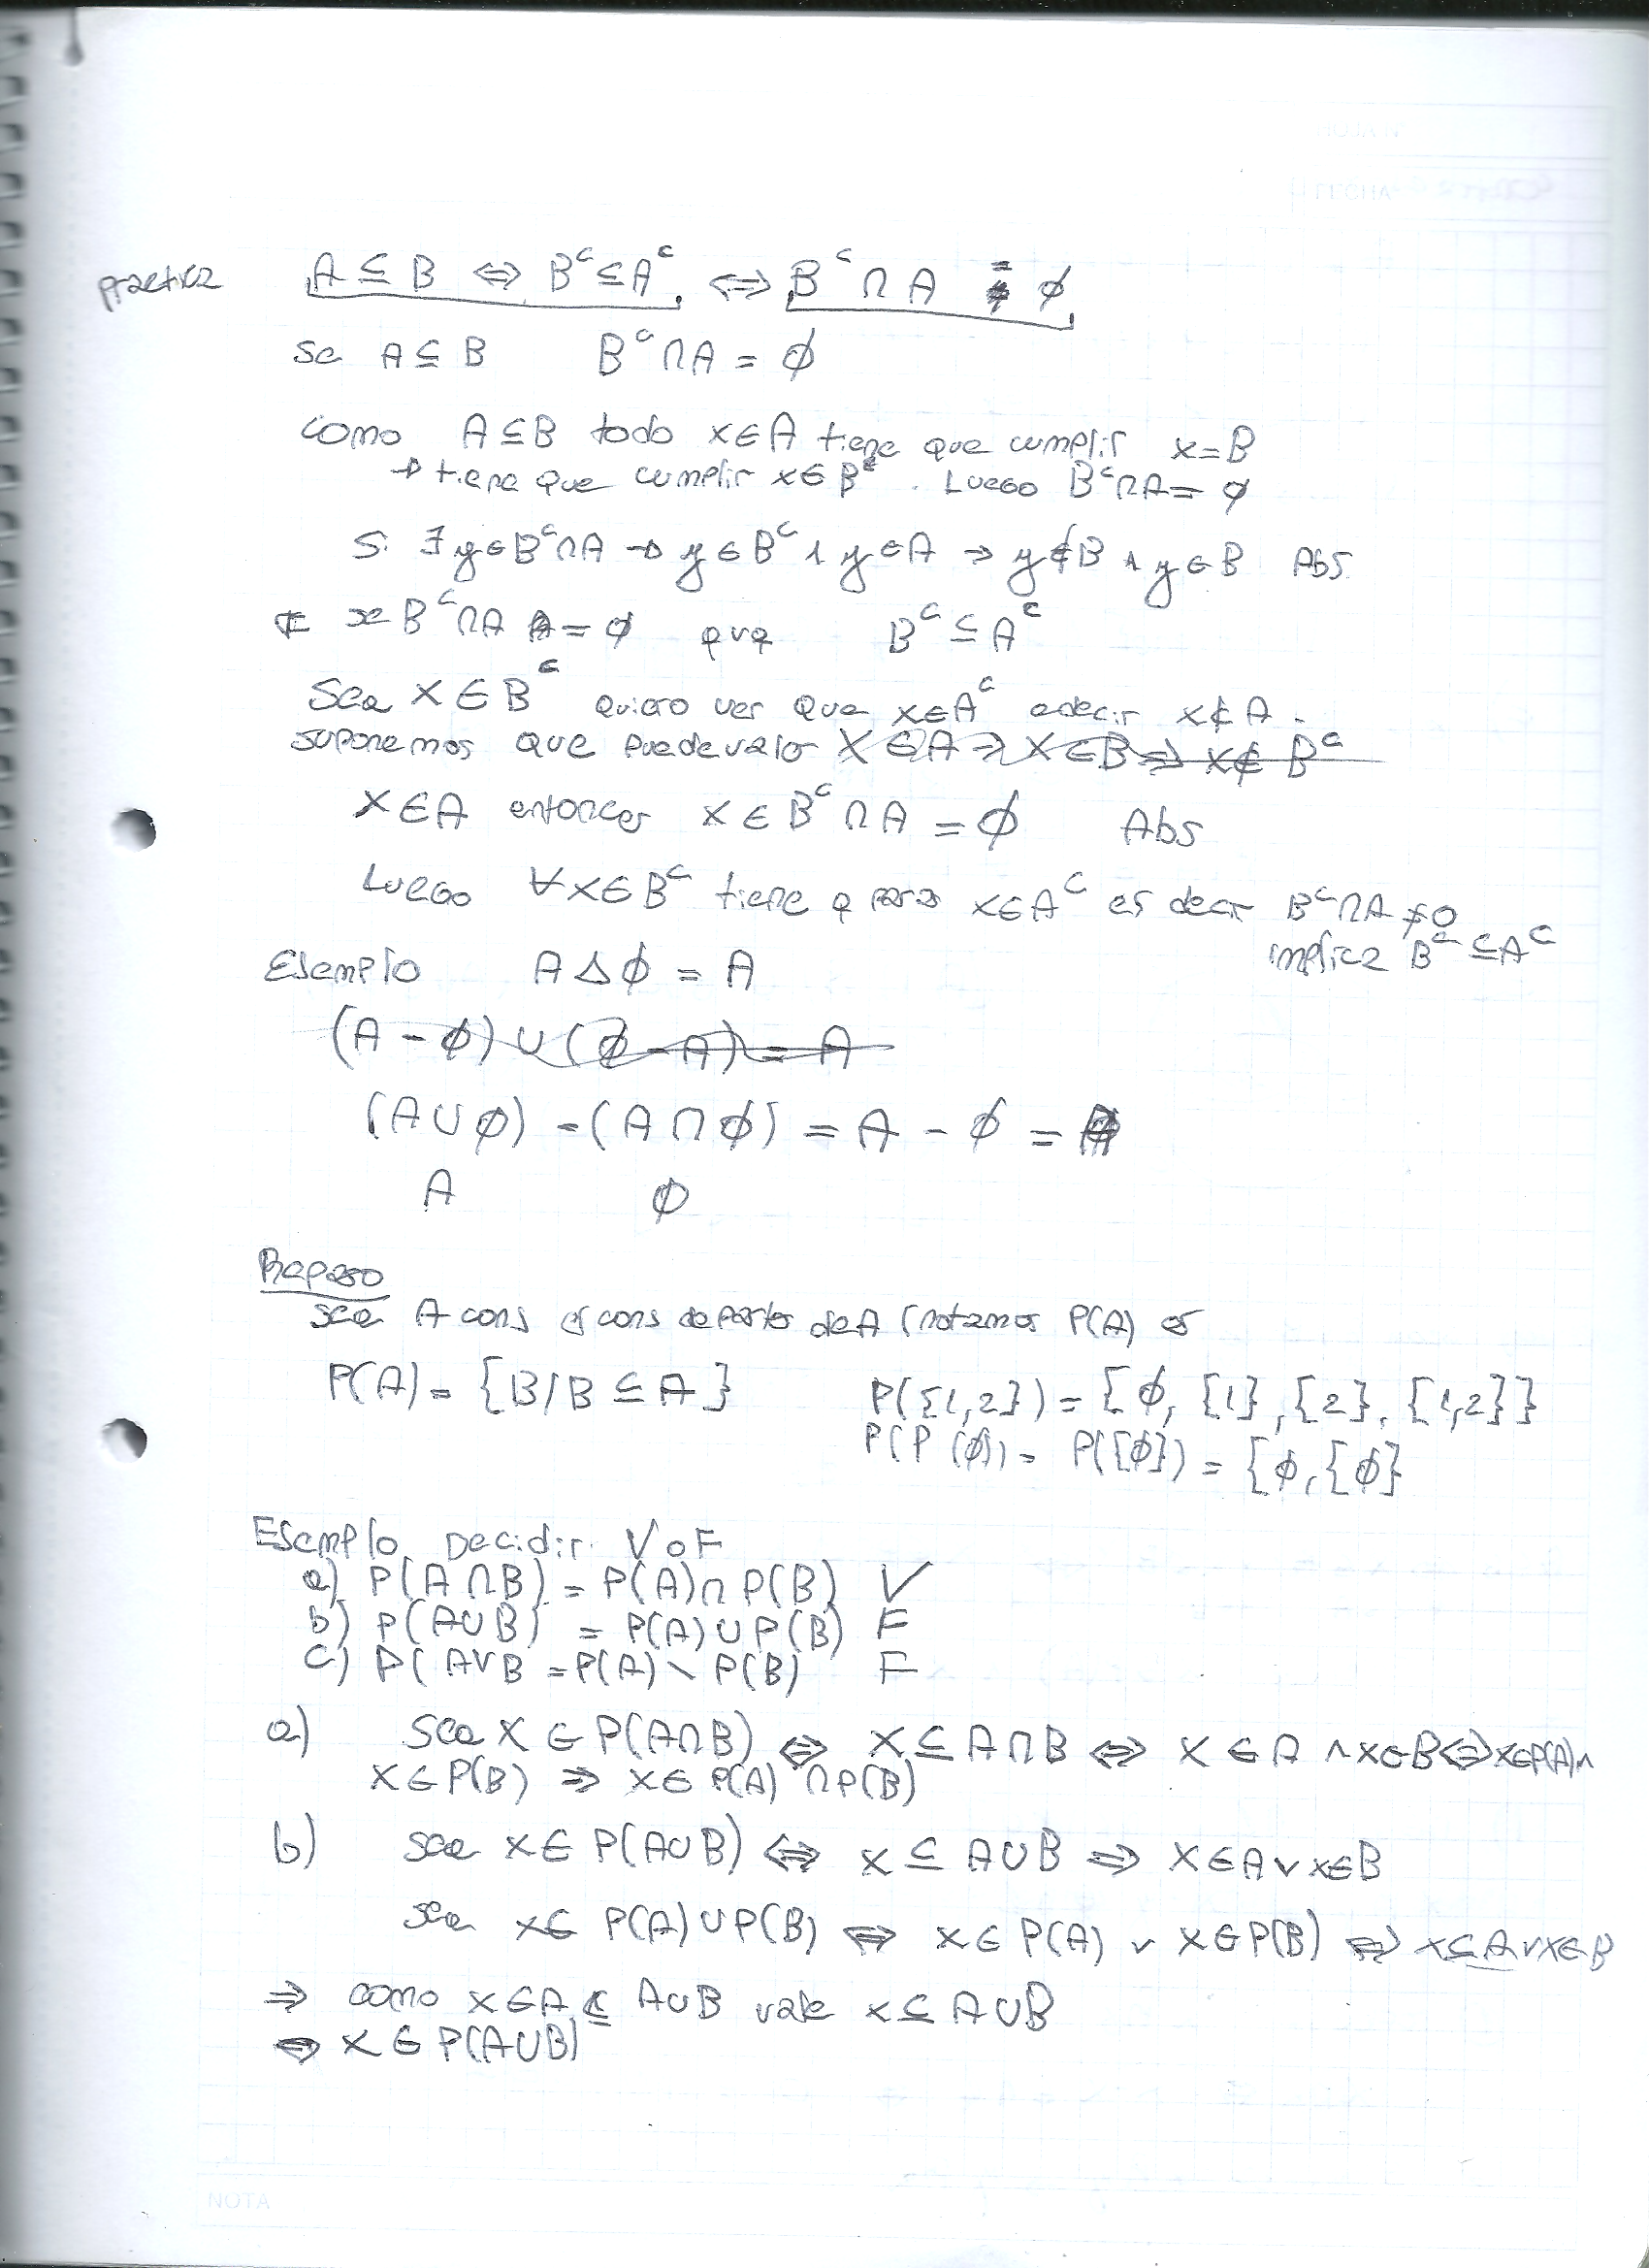 practica A ⊆ B ⇔ Bᶜ ⊆ Aᶜ ⇔ Bᶜ ∩ A = ∅
se A ⊆ B Bᶜ ∩ A = ∅
como A ⊆ B todo x ∈ A tiene que cumplir x = B
→ tiene que cumplir x ∈ B . Luego Bᶜ ∩ A = ∅
Si ∃ y ∈ Bᶜ ∩ A → y ∈ Bᶜ ∧ y ∈ A ⇒ y ∉ B ∧ y ∈ B Abs
Bᶜ ∩ A = ∅ qvq Bᶜ ⊆ Aᶜ
Sea x ∈ Bᶜ quiero ver que x ∈ Aᶜ edecir x ∉ A.
suponemos que puede valor x ∈ A ⇒ x ∈ B ⇒ x ∉ Bᶜ
x ∈ A entonces x ∈ Bᶜ ∩ A = ∅ Abs
Luego ∀ x ∈ Bᶜ tiene q x ∈ Aᶜ es decir Bᶜ ∩ A ≠ ∅
implica Bᶜ ⊆ Aᶜ
Ejemplo A Δ ∅ = A
(A - ∅) ∪ (∅ - A) = A
(A ∪ ∅) - (A ∩ ∅) = A - ∅ = A
A ∅
Repaso
sea A conj el conj de partes de A (notamos P(A) es
P(A) = {B / B ⊆ A} P({1,2}) = {∅, {1}, {2}, {1,2}}
P(P(∅)) = P({∅}) = {∅, {∅}
Ejemplo Decidir V o F
a) P(A ∩ B) = P(A) ∩ P(B) V
b) P(A ∪ B) = P(A) ∪ P(B) F
c) P(A \ B = P(A) \ P(B) F
a) Sea x ∈ P(A ∩ B) ⇔ x ⊆ A ∩ B ⇔ x ∈ A ∧ x ∈ B ⇔ x ∈ P(A) ∧
x ∈ P(B) ⇒ x ∈ P(A) ∩ P(B)
b) sea x ∈ P(A ∪ B) ⇔ x ⊆ A ∪ B ⇒ x ∈ A ∨ x ∈ B
sea x ∈ P(A) ∪ P(B) ⇔ x ∈ P(A) ∨ x ∈ P(B) ⇔ x ⊆ A ∨ x ∈ B
⇒ como x ∈ A ⊆ A ∪ B vale x ⊆ A ∪ B
⇔ x ∈ P(A ∪ B)
NOTA